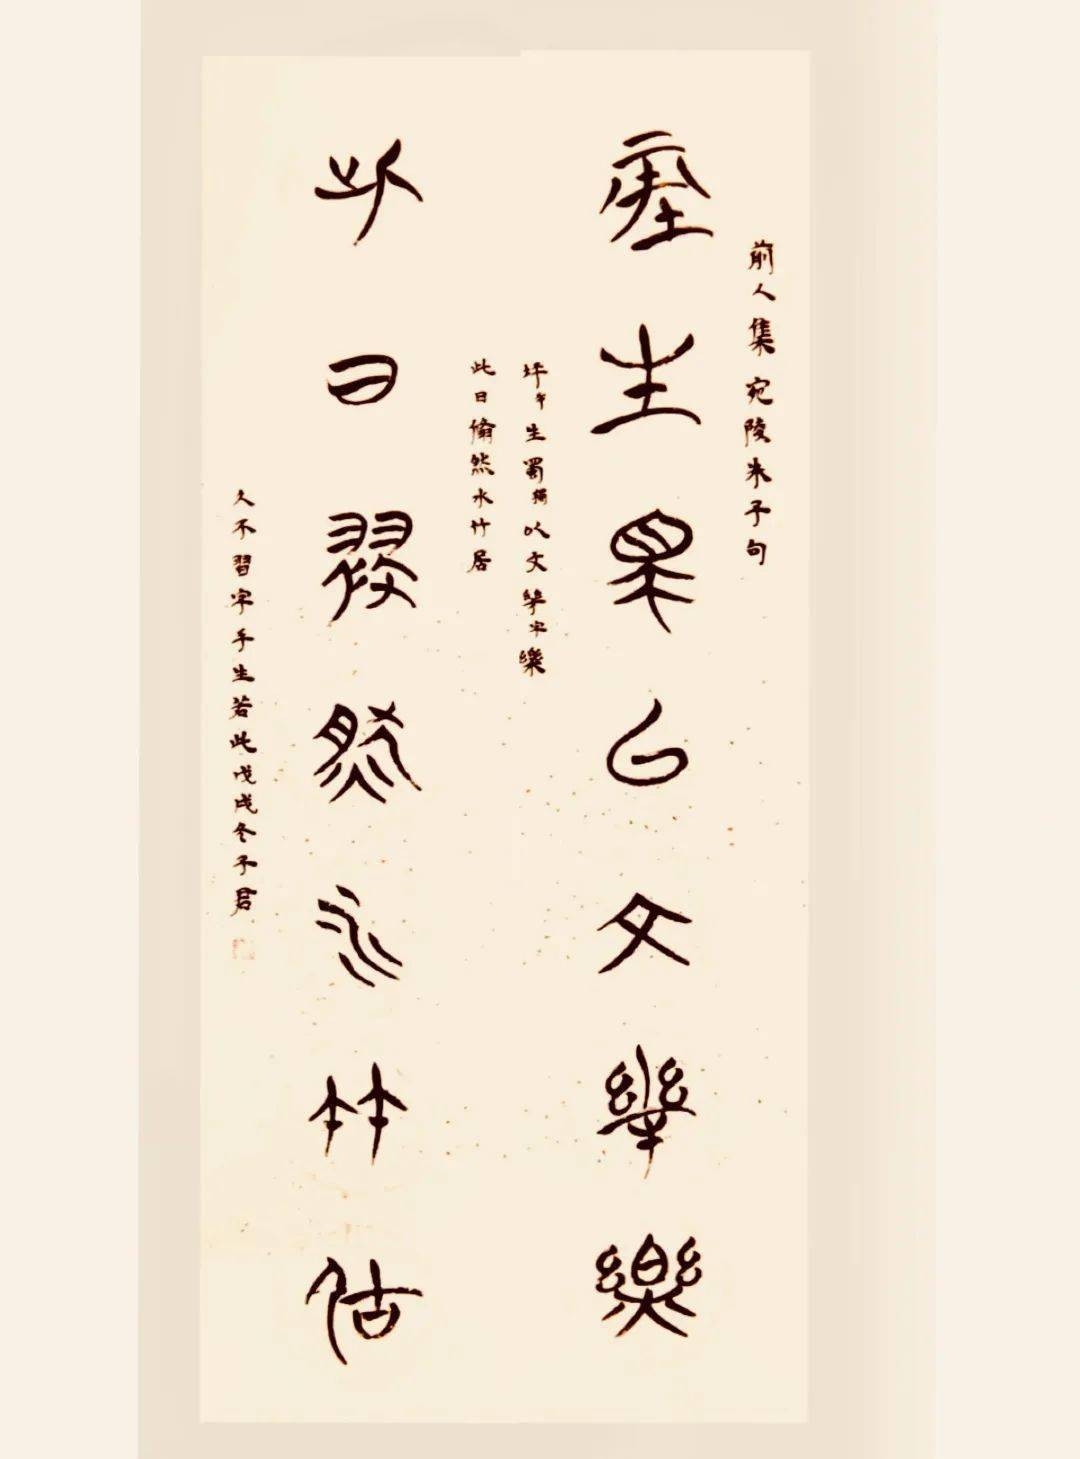 前人集宛陵朱子句
坪生蜀以文樂
坪平生蜀獨以文字樂
此日翛然水竹居
此日翛然水竹居
久不習字手生若此戊戌冬子君